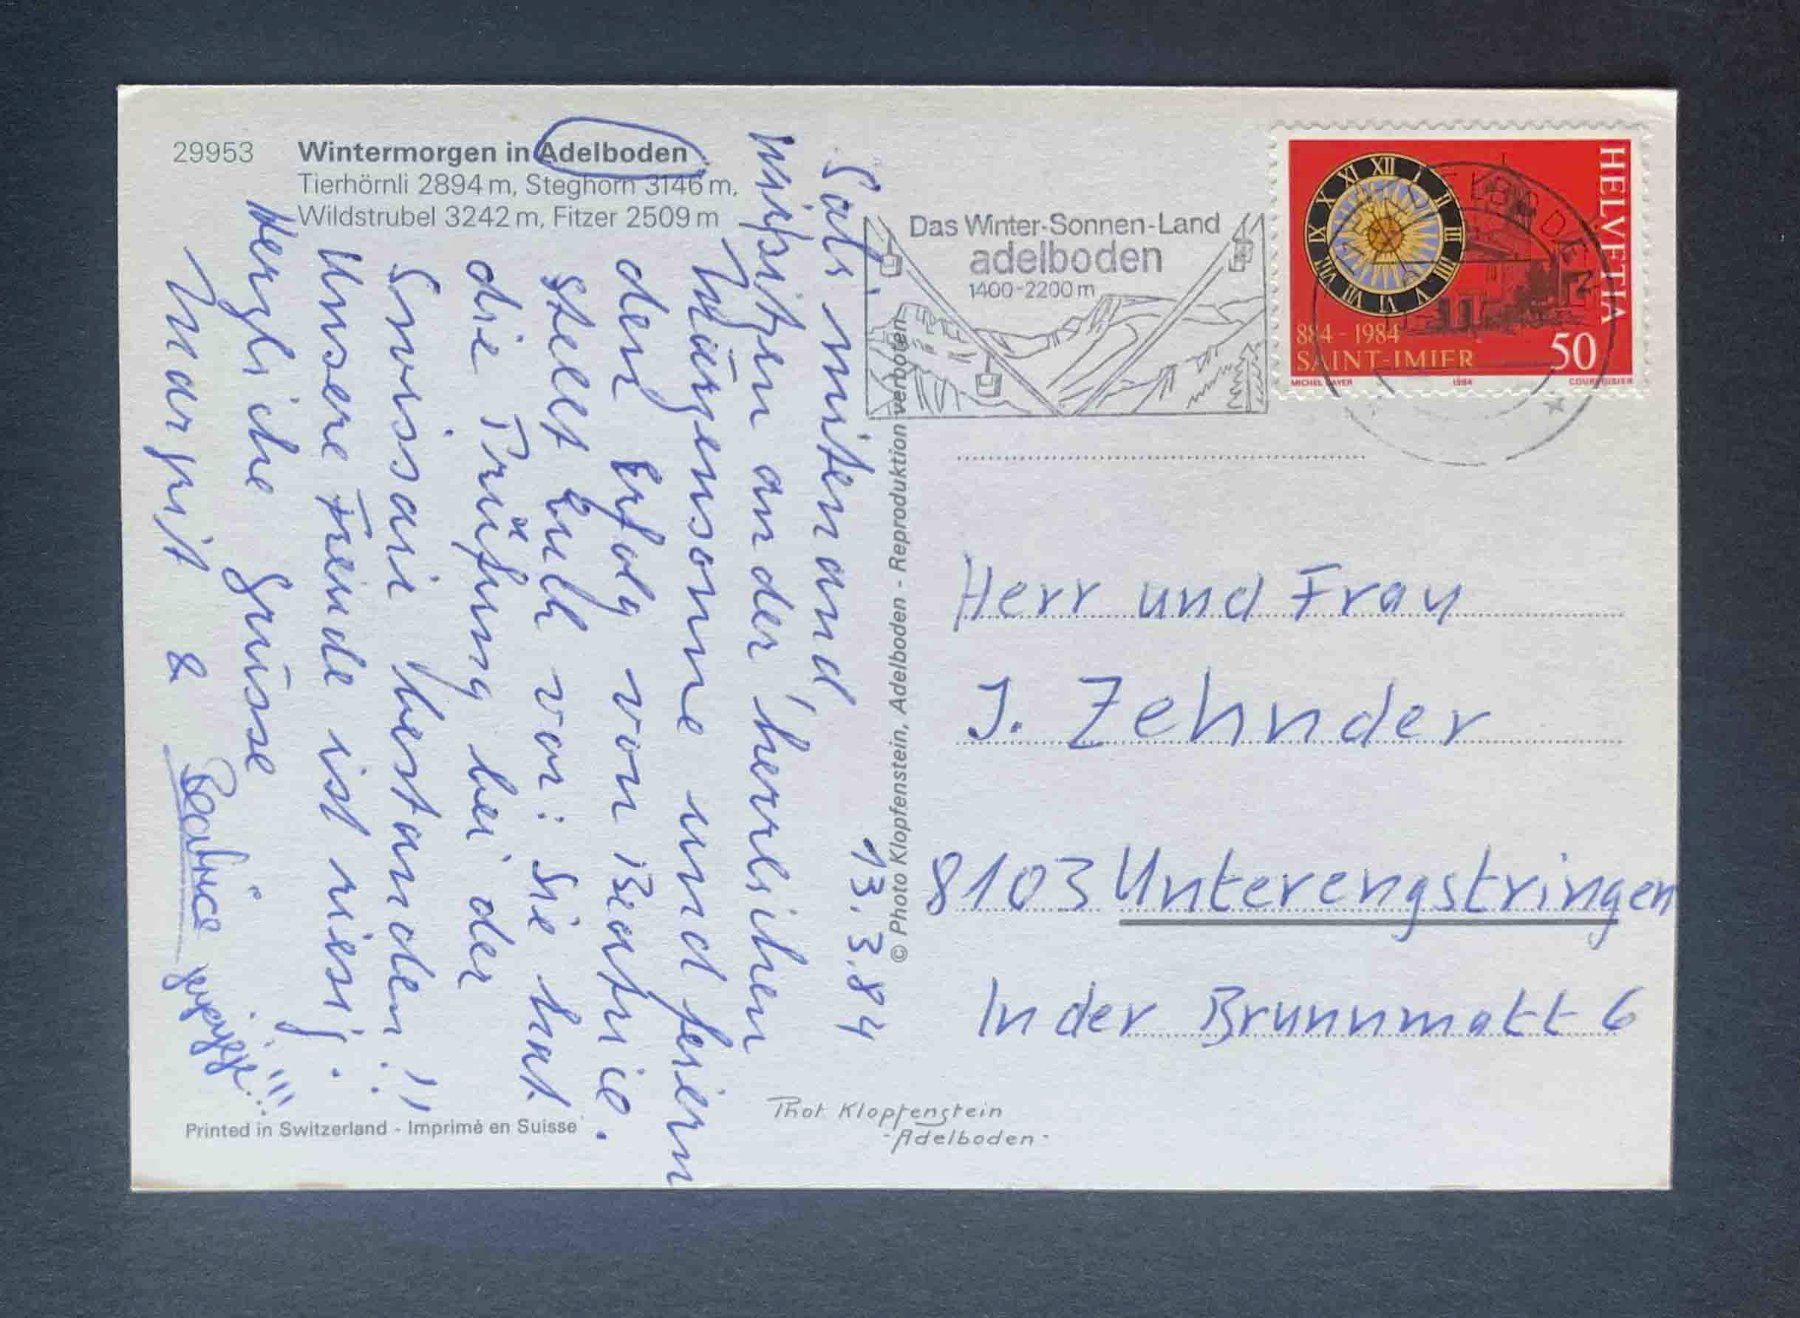 29953 Wintermorgen in Adelboden
Tierhörnli 2894 m, Steghorn 3146 m,
Wildstrubel 3242 m, Fitzer 2509 m
13.3.84
Sali mitenand,
wir sitzen an der herrlichen
Märzensonne und feiern
den Erfolg von Beatrice.
Stellt Euch vor: Sie hat
die Prüfung bei der
Swissair bestanden!!
Unsere Freude ist riesig.
Herzliche Grüsse
Margrit & Beatrice
Printed in Switzerland - Imprimé en Suisse
© Photo Klopfenstein, Adelboden - Reproduktion verboten
Phot Klopfenstein
- Adelboden -
Das Winter-Sonnen-Land
adelboden
1400-2200 m
ADELBODEN
HELVETIA
XII I II III IIII V VI VII VIII IX X XI
884 - 1984
SAINT-IMIER
50
1984
COURVOISIER
Herr und Frau
J. Zehnder
8103 Unterengstringen
In der Brunnmatt 6